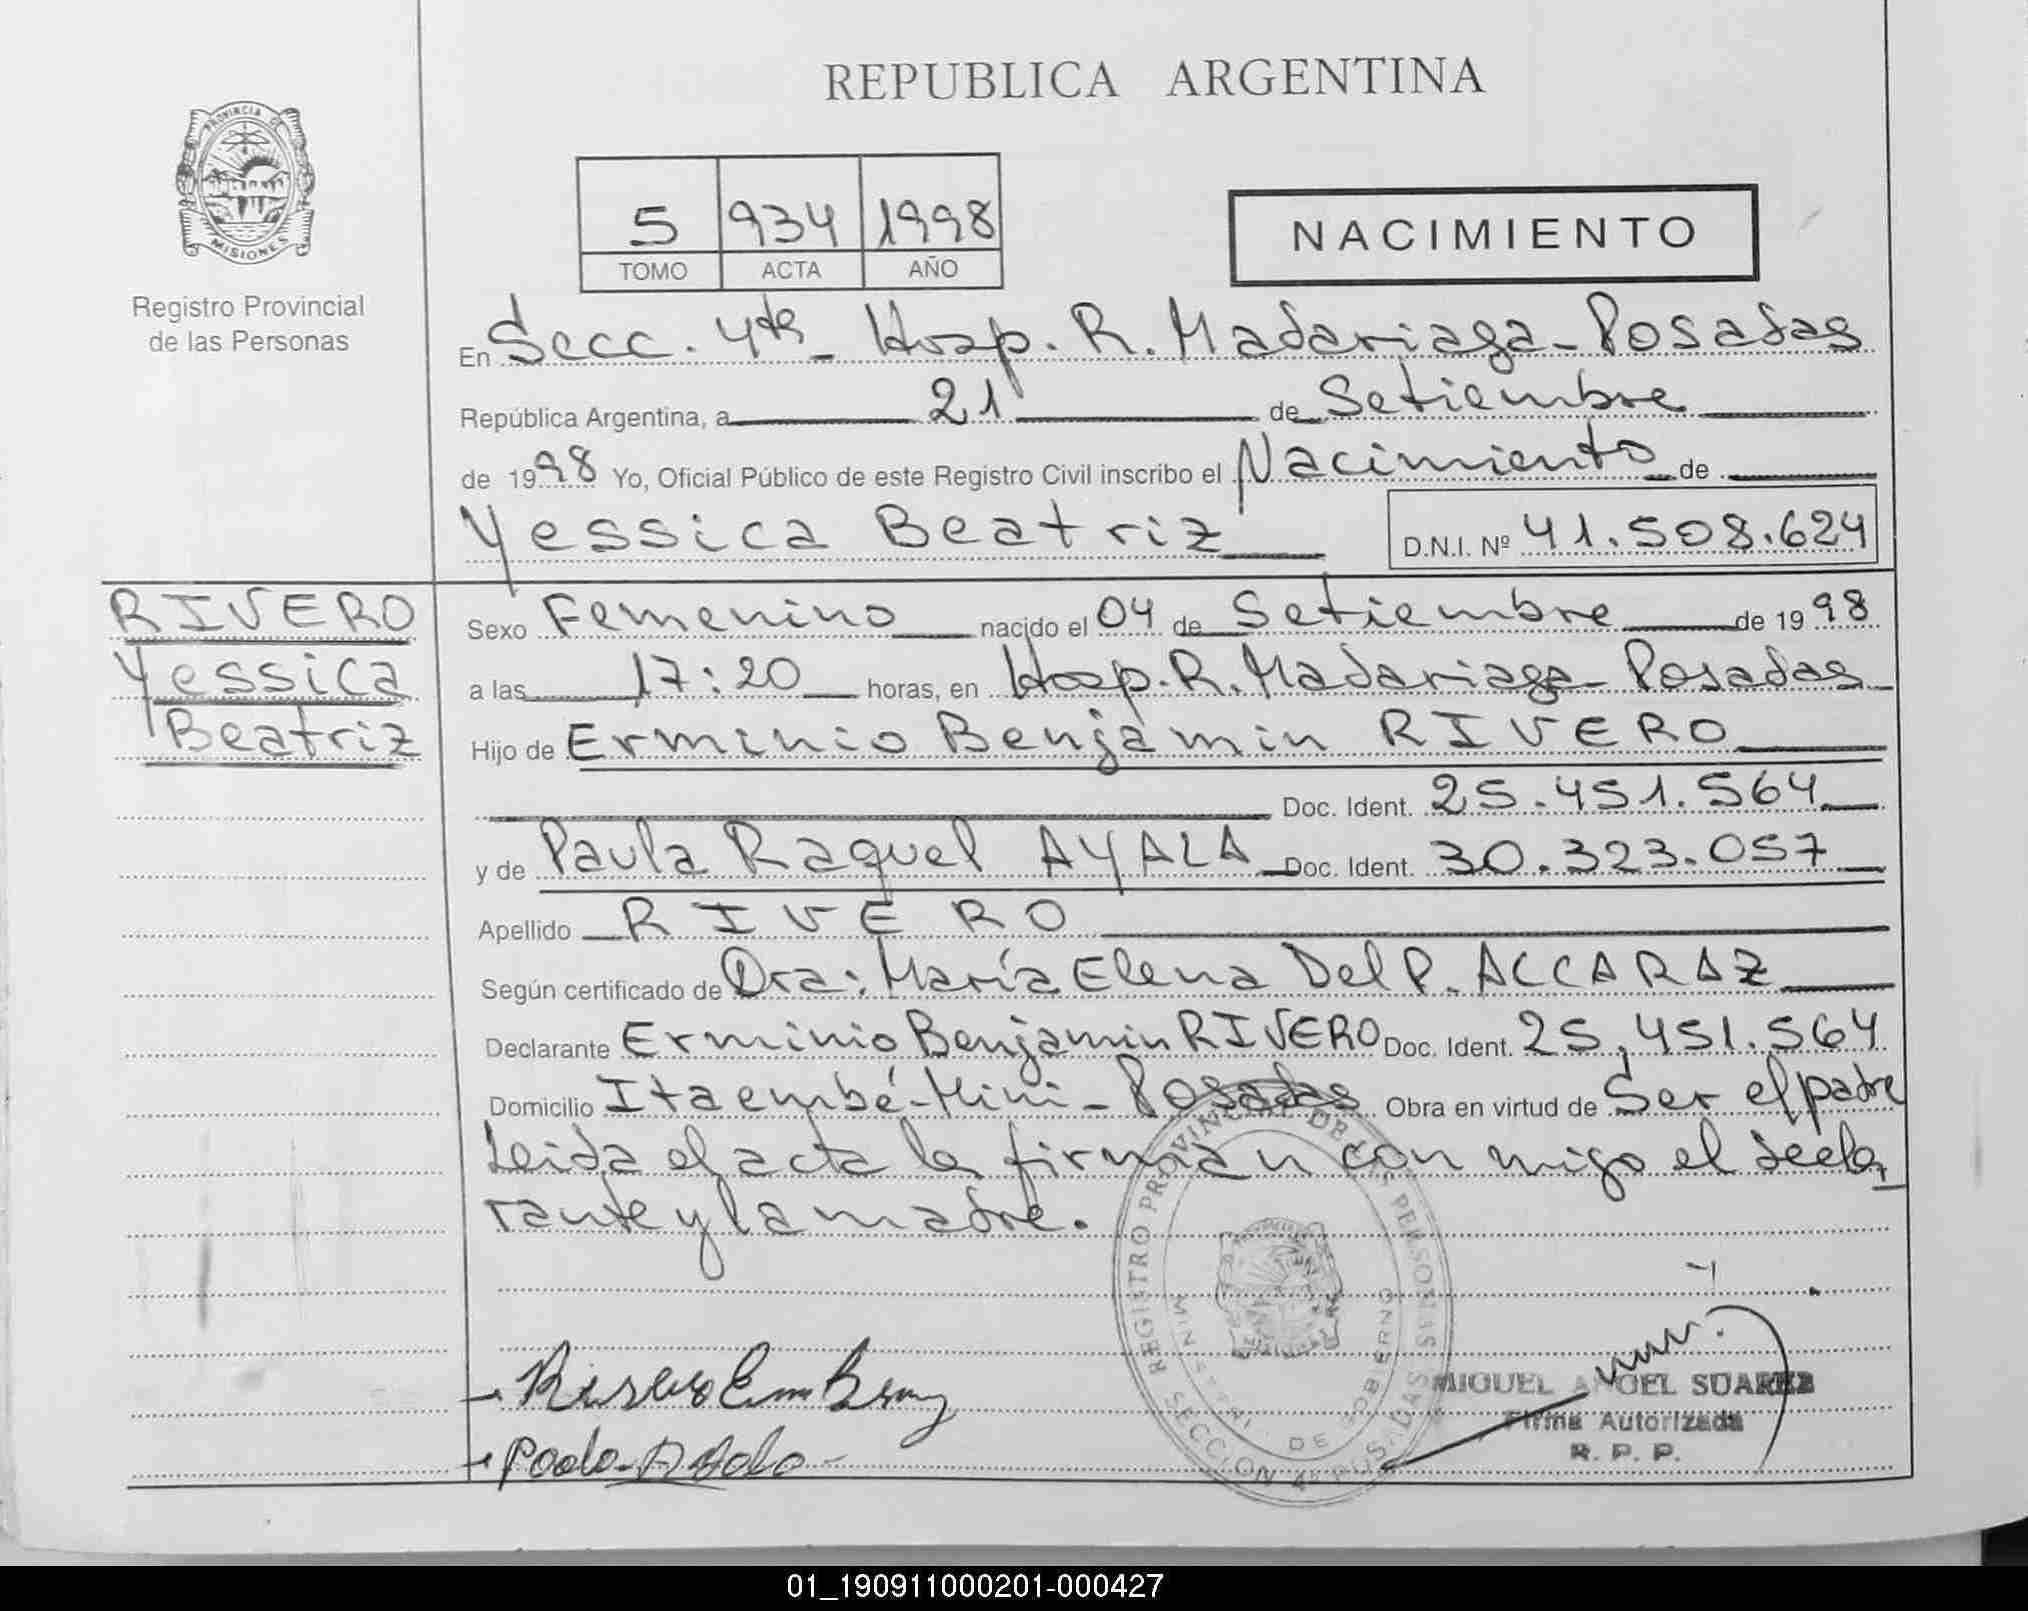 REPUBLICA ARGENTINA
PROVINCIA DE
MISIONES
Registro Provincial
de las Personas
5 934 1998
TOMO ACTA AÑO
NACIMIENTO
En Secc. 4ta Hosp. R. Madariaga - Posadas
República Argentina, a 21 de Setiembre
de 1998 Yo, Oficial Público de este Registro Civil inscribo el Nacimiento de
Yessica Beatriz D.N.I. Nº 41.508.624
RIVERO
Yessica
Beatriz
Sexo Femenino nacido el 04 de Setiembre de 1998
a las 17:20 horas, en Hosp. R. Madariaga - Posadas
Hijo de Erminio Benjamin RIVERO
Doc. Ident. 25.451.564
y de Paula Raquel AYALA Doc. Ident. 30.323.057
Apellido RIVERO
Según certificado de Dra: María Elena Del P. ALCARAZ
Declarante Erminio Benjamin RIVERO Doc. Ident. 25.451.564
Domicilio Itaembé-Mini - Posadas Obra en virtud de Ser el padre
Leida el acta la firman con migo el decla
rante y la madre.
REGISTRO PROVINCIAL DE LAS PERSONAS
MINISTERIO DE GOBIERNO
SECCION 4ª POSADAS
MIGUEL ANGEL SUAREZ
Firma Autorizada
R. P. P.
01_190911000201-000427